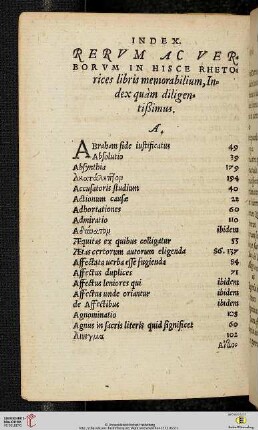 INDEX.
RERVM AC VER-
BORVM IN HISCE RHETO
rices libris memorabilium, In-
dex quàm diligen-
tißimus.
A.
ABraham fide iustificatus 49
Absolutio 39
Absynthia 179
194
Accusatoris studium 40
Actionum causæ 22
Adhortationes 60
Admiratio 110
ibidem
Æquitas ex quibus colligatur 53
Ætas certorum autorum eligenda 86. 137
Affectata uerba esse fugienda 84
Affectus duplices 71
Affectus leniores qui ibidem
Affectus unde oriantur ibidem
de Affectibus ibidem
Agnominatio 108
Agnus in sacris literis quid significet 60
Αἴνιγμα 102